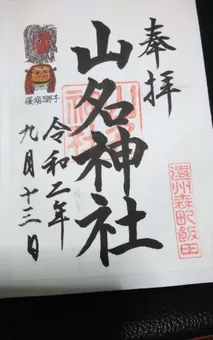 奉拝
遠州森町飯田
山名神社
令和二年
九月十三日